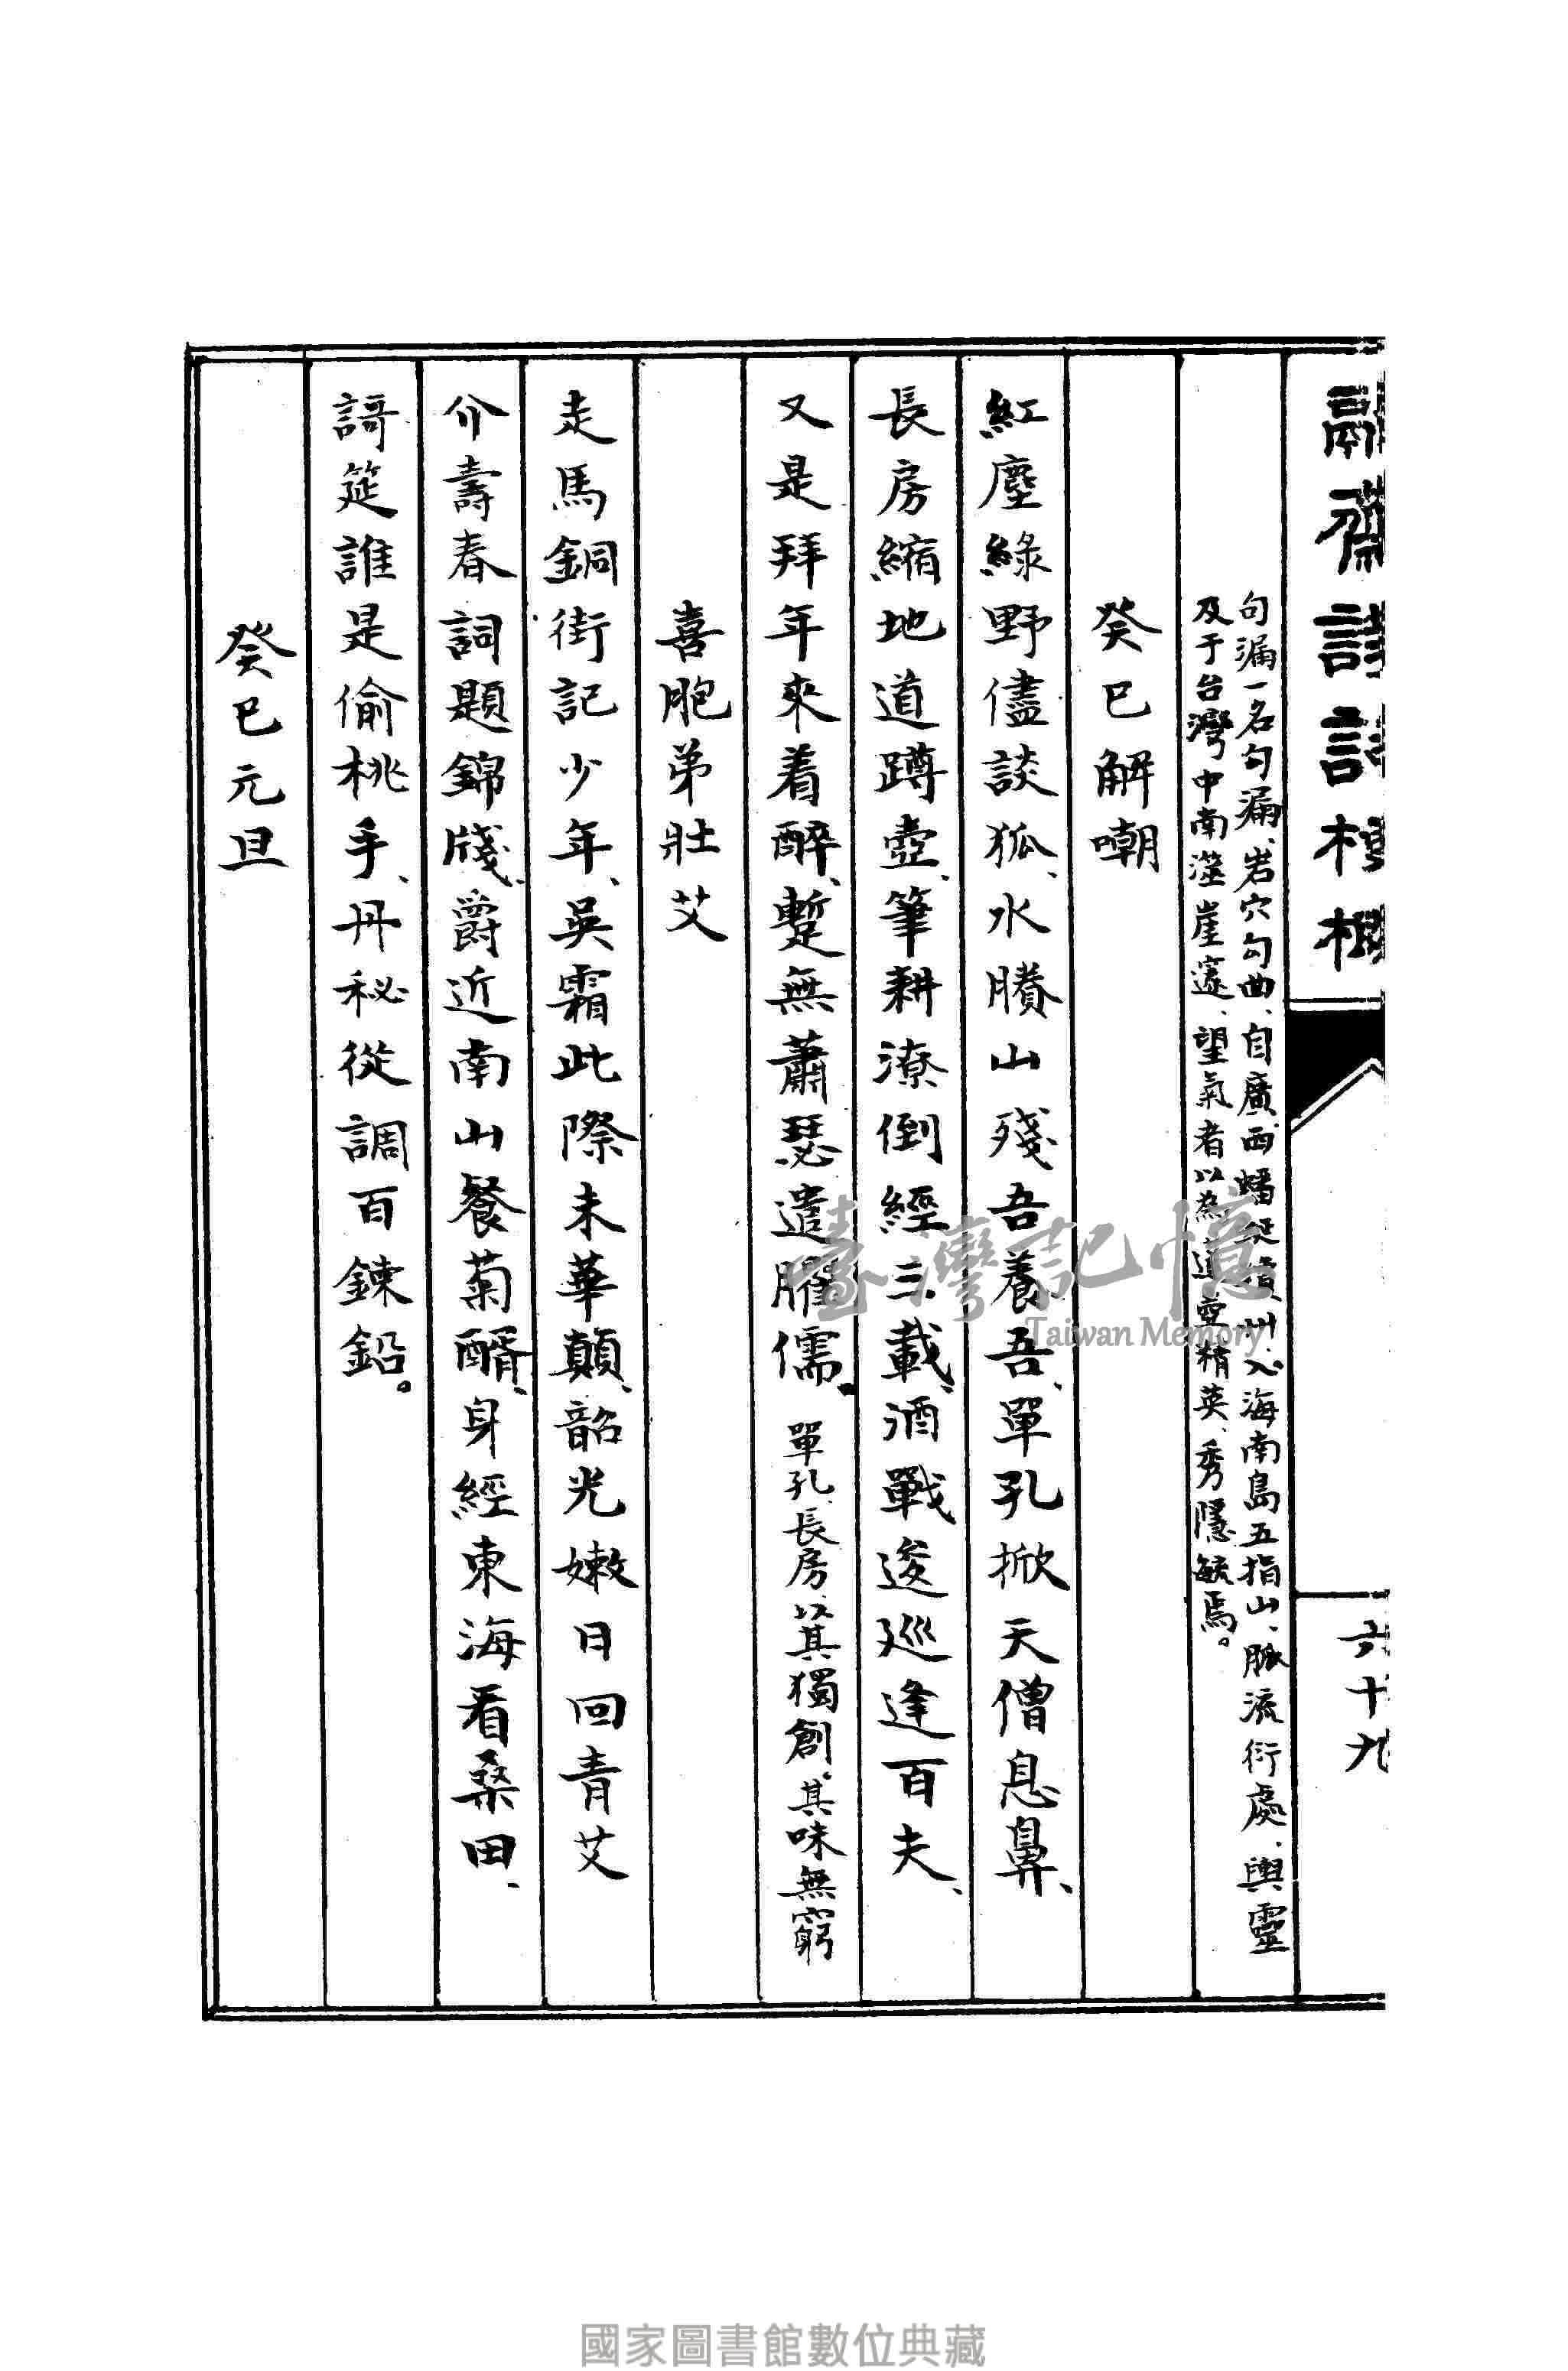 六十九
句漏一名勾漏、岩穴勾曲、自廣西蟠 州、入海南島五指山、脈流衍處、輿靈
及于台灣中南滋崖 、望氣者以為 空精英、秀隱毓焉。
癸巳解嘲
紅塵綠野儘談狐、水賸山殘吾養吾、單孔掀天僧息鼻、
長房縮地道蹲壺、筆耕潦倒經三載、酒戰逡巡逢百夫、
又是拜年來着醉、蹔無蕭瑟遣臞儒。單孔、長房、以其獨創、其味無窮
喜胞弟壯艾
走馬銅街記少年、吳霜此際未華顛、韶光嫩日回青艾
介壽春詞題錦牋、爵近南山餐菊醑、身經東海看桑田、
謌筵誰是偷桃手、丹秘從調百鍊鉛。
癸巳元旦
臺灣記憶
Taiwan Memory
國家圖書館數位典藏